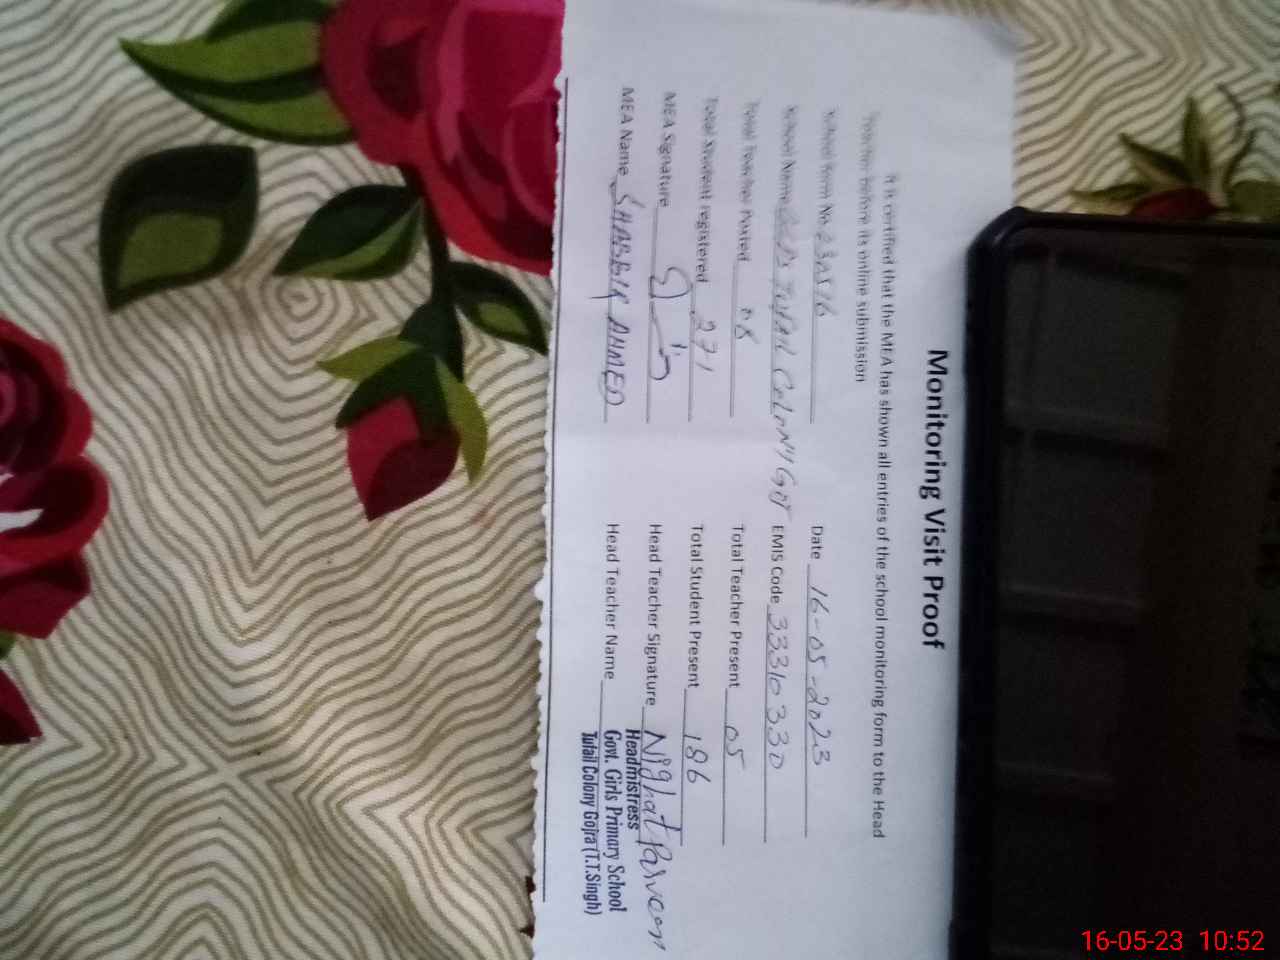 Monitoring Visit Proof
It is certified that the MEA has shown all entries of the school monitoring form to the Head
Teacher before its online submission
School Form No. Date 16-05-2023
School Name GGPS TUFAIL COLONY GOJ EMIS Code 33310330
Total Teacher Posted Total Teacher Present 05
Total Student registered 271 Total Student Present 186
MEA Signature Head Teacher Signature Nighat Parveen
MEA Name SHABBIR AHMED Head Teacher Name
Headmistress
Govt. Girls Primary School
Tufail Colony Gojra (T.T.Singh)
16-05-23 10:52